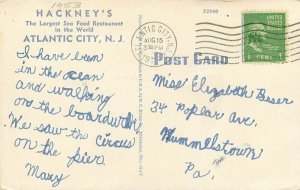 1953
HACKNEY'S
The Largest Sea Food Restaurant
in the World
ATLANTIC CITY, N. J.
I have been
in the ocean
and walking
on the boardwalk.
We saw the circus
on the pier
Mary
32940
ATLANTIC CITY, N.J.
AUG 15
POST CARD
1 CENT
Miss Elizabeth
34 Poplar Ave.
Hummelstown
Pa.